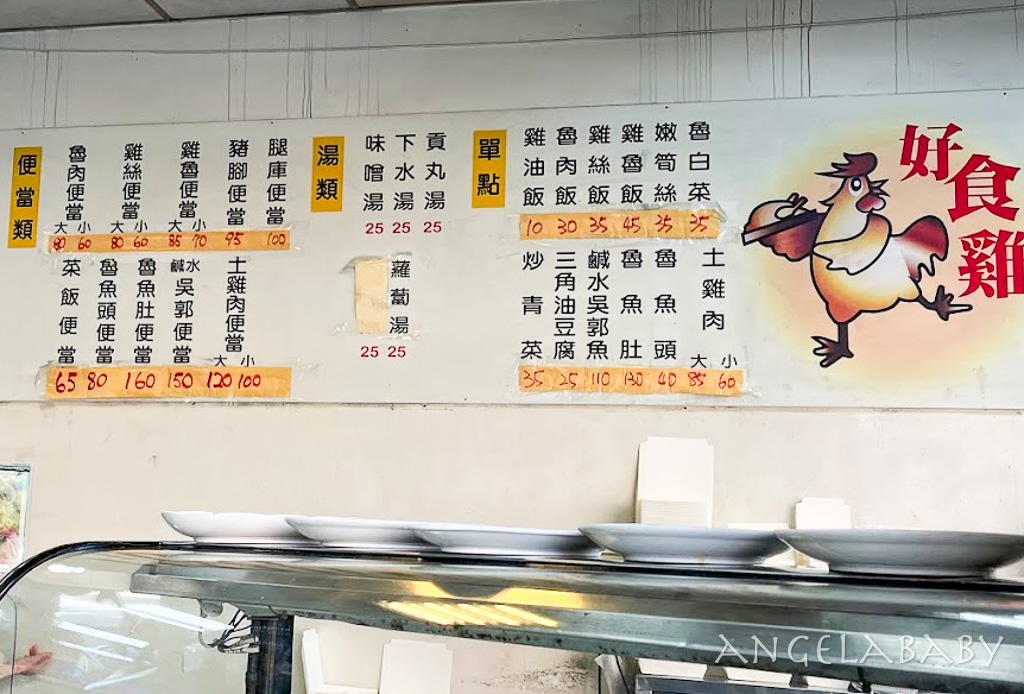 便當類
魯肉便當 大 小 80 60
雞絲便當 大 小 80 60
雞魯便當 大 小 85 70
豬腳便當 95
腿庫便當 100
菜飯便當 65
魯魚頭便當 80
魯魚肚便當 160
鹹水吳郭便當 150
土雞肉便當 大 小 120 100
湯類
味噌湯 25
下水湯 25
貢丸湯 25
25
蘿蔔湯 25
單點
雞油飯 10
魯肉飯 30
雞絲飯 35
雞魯飯 45
嫩筍絲 35
魯白菜 35
炒青菜 35
三角油豆腐 25
鹹水吳郭魚 110
魯魚肚 130
魯魚頭 40
土雞肉 大 小 85 60
好食雞
ANGELABABY